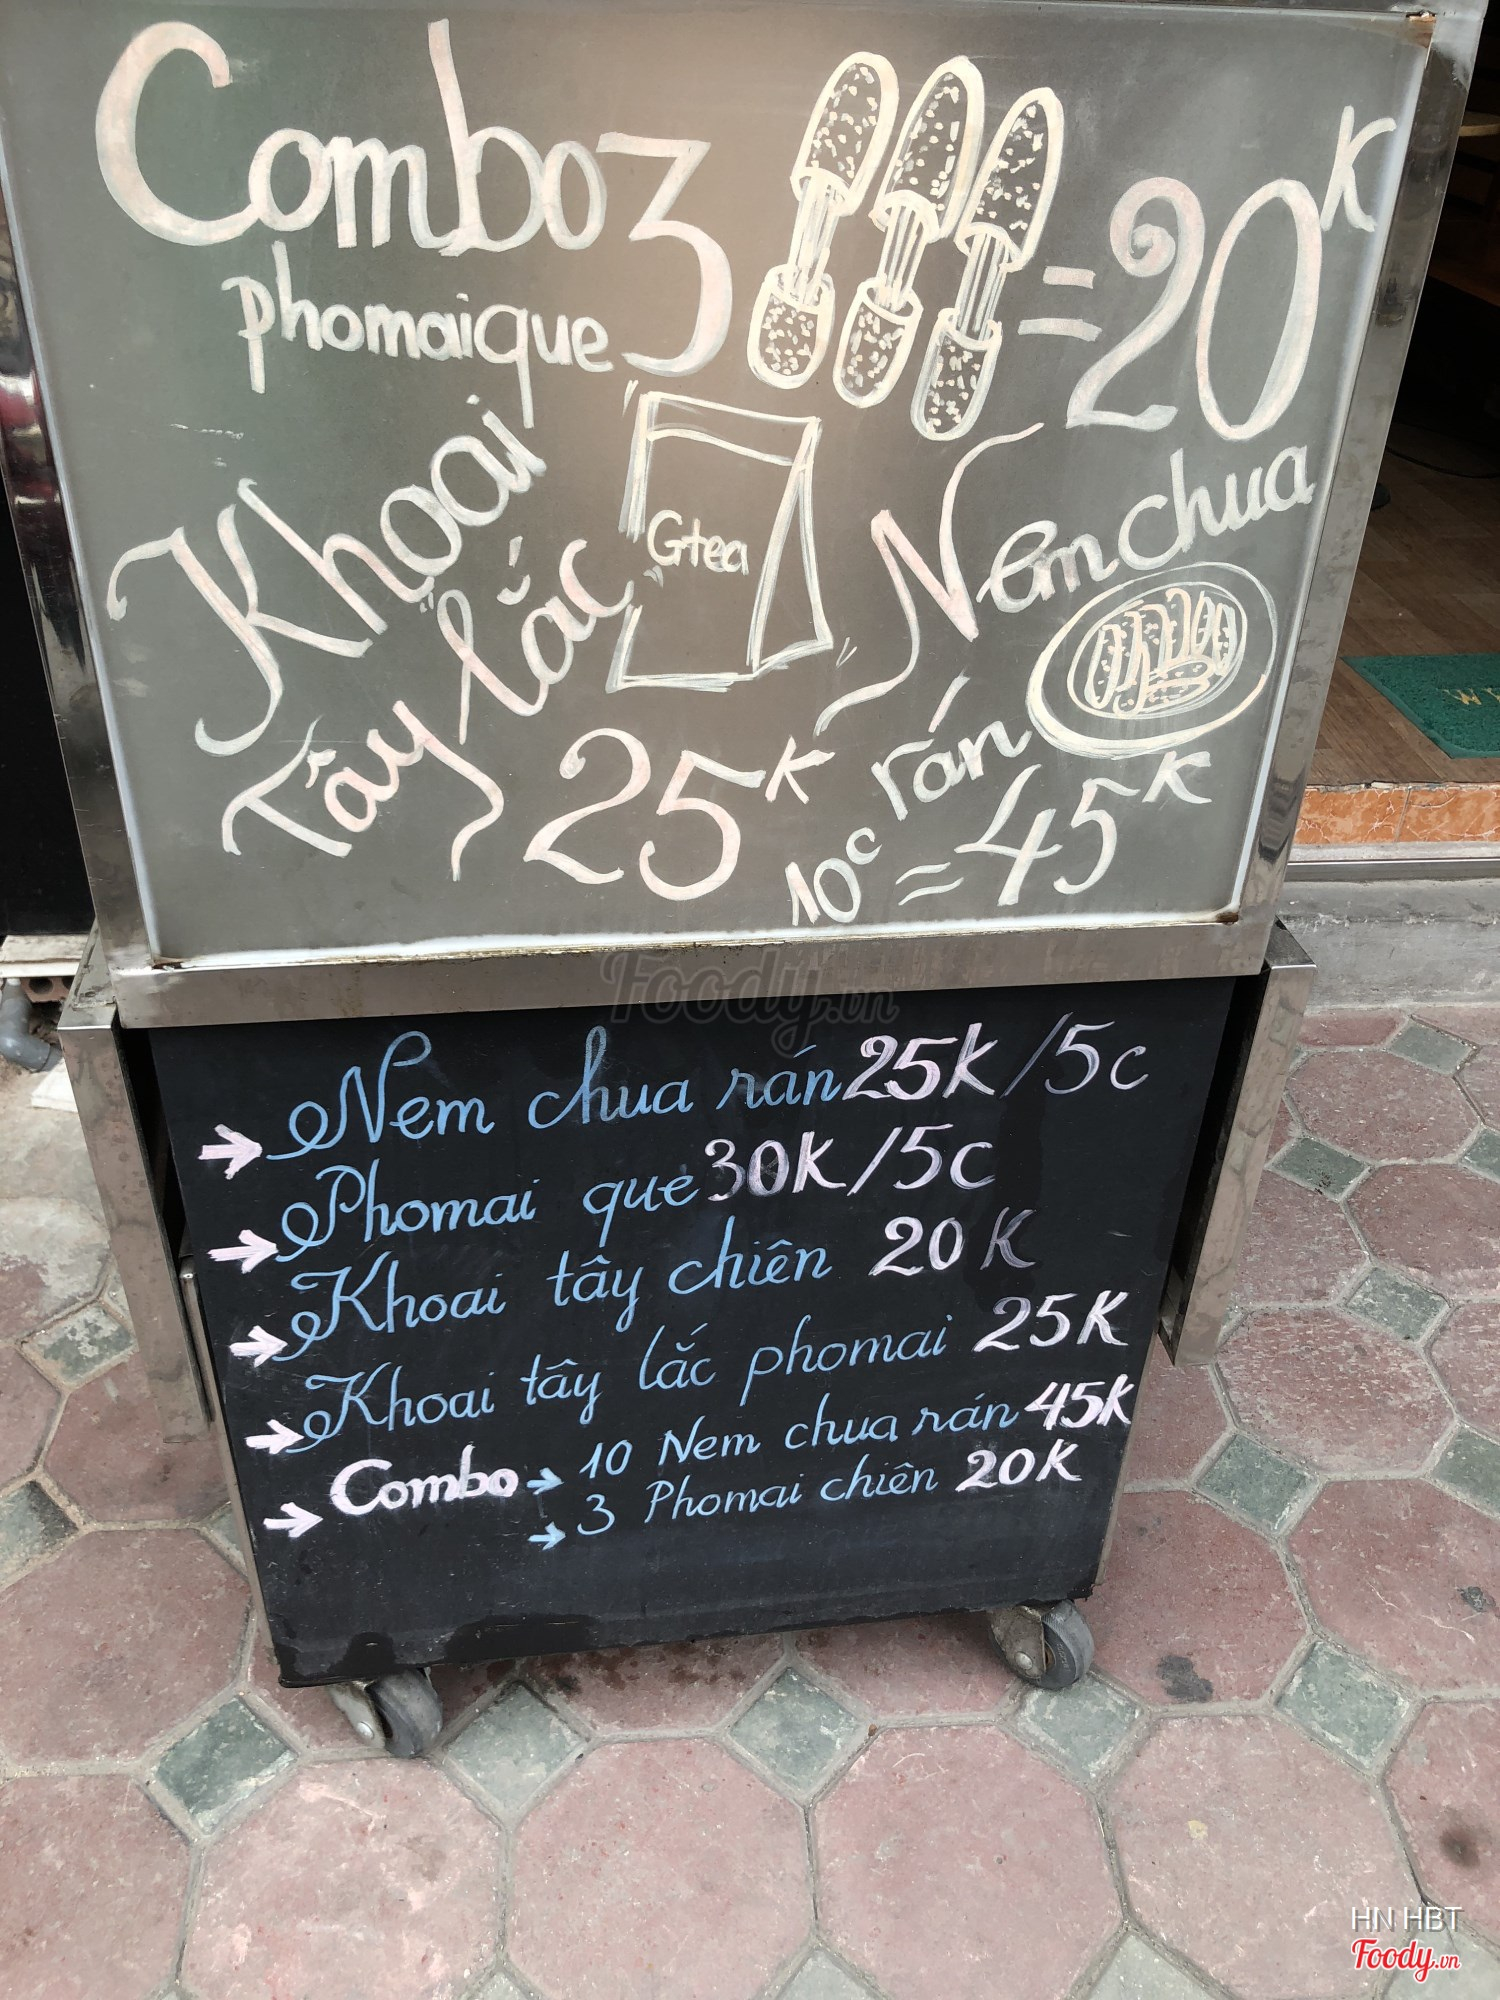 Combo 3 = 20K
phomaique
Khoai
Tây lắc
25K
Gtea
Nem chua
rán
10c = 45K
Foody.vn
Nem chua rán 25K/5c
Phomai que 30K/5c
Khoai tây chiên 20K
Khoai tây lắc phomai 25K
Combo → 10 Nem chua rán 45K
→ 3 Phomai chiên 20K
HN HBT
Foody.vn